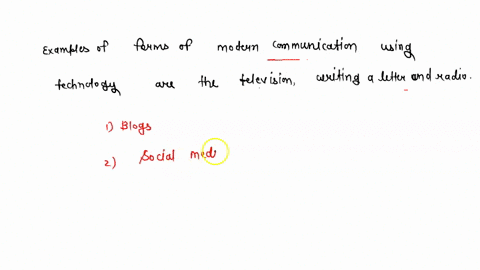 Examples of forms of modern communication using
technology are the television, writing a letter and radio.
1) Blogs
2) Social med